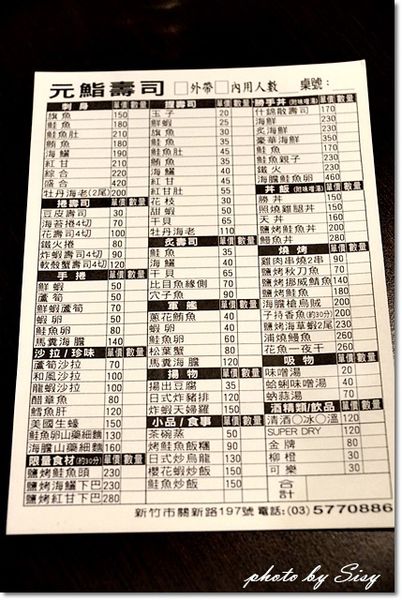 元鮨壽司 □外帶 □內用人數 桌號:
刺身 單價 數量
旗魚 150
鮭魚 180
鮭魚肚 210
鮪魚 180
海鱺 190
紅甘 210
綜合 220
盛合 420
牡丹海老(2尾) 200
捲壽司 單價 數量
豆皮壽司 30
海苔捲4切 70
花壽司4切 100
鐵火捲 80
炸蝦壽司4切 90
軟殼蟹壽司4切 120
手捲 單價 數量
鮮蝦 50
蘆筍 50
鮮蝦蘆筍 70
蝦卵 50
鮭魚卵 80
馬糞海膽 140
沙拉/珍味 單價 數量
蘆筍沙拉 100
和風沙拉 100
龍蝦沙拉 100
醋章魚 80
鱈魚肝 120
美國生蠔 150
鮭魚卵山藥細麵 130
海膽山藥細麵 160
限量食材(約30分) 單價 數量
鹽烤鮭魚頭 230
鹽烤海鱺下巴 230
鹽烤紅甘下巴 280
握壽司 單價 數量
玉子 20
鮮蝦 25
旗魚 30
鮭魚 35
鮭魚肚 45
鮪魚 35
海鱺 40
紅甘 45
紅甘肚 55
花枝 30
甜蝦 50
干貝 65
牡丹海老 110
炙壽司 單價 數量
鮭魚 35
海鱺 40
干貝 65
比目魚緣側 70
穴子魚 90
軍艦 單價 數量
蔥花鮪魚 40
蝦卵 40
鮭魚卵 60
松葉蟹 80
馬糞海膽 120
揚物 單價 數量
揚出豆腐 35
日式炸豬排 120
炸蝦天婦羅 150
小品/食事 單價 數量
茶碗蒸 50
烤鮭魚飯糰 90
日式炒烏龍 130
櫻花蝦炒飯 150
鮭魚炒飯 150
勝手丼(附味噌湯) 單價 數量
什錦散壽司 170
海鮮 230
炙海鮮 230
豪華海鮮 350
鮭魚 170
鮭魚親子 230
鐵火 230
海膽鮭魚卵 460
丼飯(附味噌湯) 單價 數量
勝丼 150
照燒雞腿丼 150
天丼 160
鹽烤鮭魚丼 180
鰻魚丼 280
燒烤 單價 數量
雞肉串燒2串 90
鹽烤秋刀魚 70
鹽烤挪威鯖魚 140
鹽烤鮭魚 180
海膽槍烏賊 200
子持香魚(約30分) 200
鹽烤海草蝦2尾 230
蒲燒鰻魚 260
花魚一夜干 260
吸物 單價 數量
味噌湯 20
蛤蜊味噌湯 40
蚋蒜湯 70
酒精類/飲品 單價 數量
清酒○冰○溫 120
SUPER DRY 120
金牌 80
柳橙 30
可樂 30
合計
新竹市關新路197號 電話:(03) 5770886
photo by Sisy